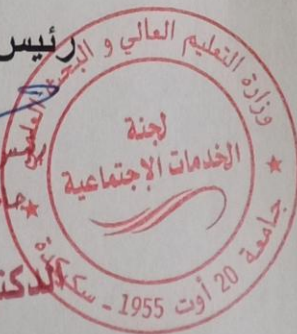 رئيس
وزارة التعليم العالي و البحث العلمي
لجنة
الخدمات الإجتماعية
جامعة 20 أوت 1955 - سكيكدة
الدكت